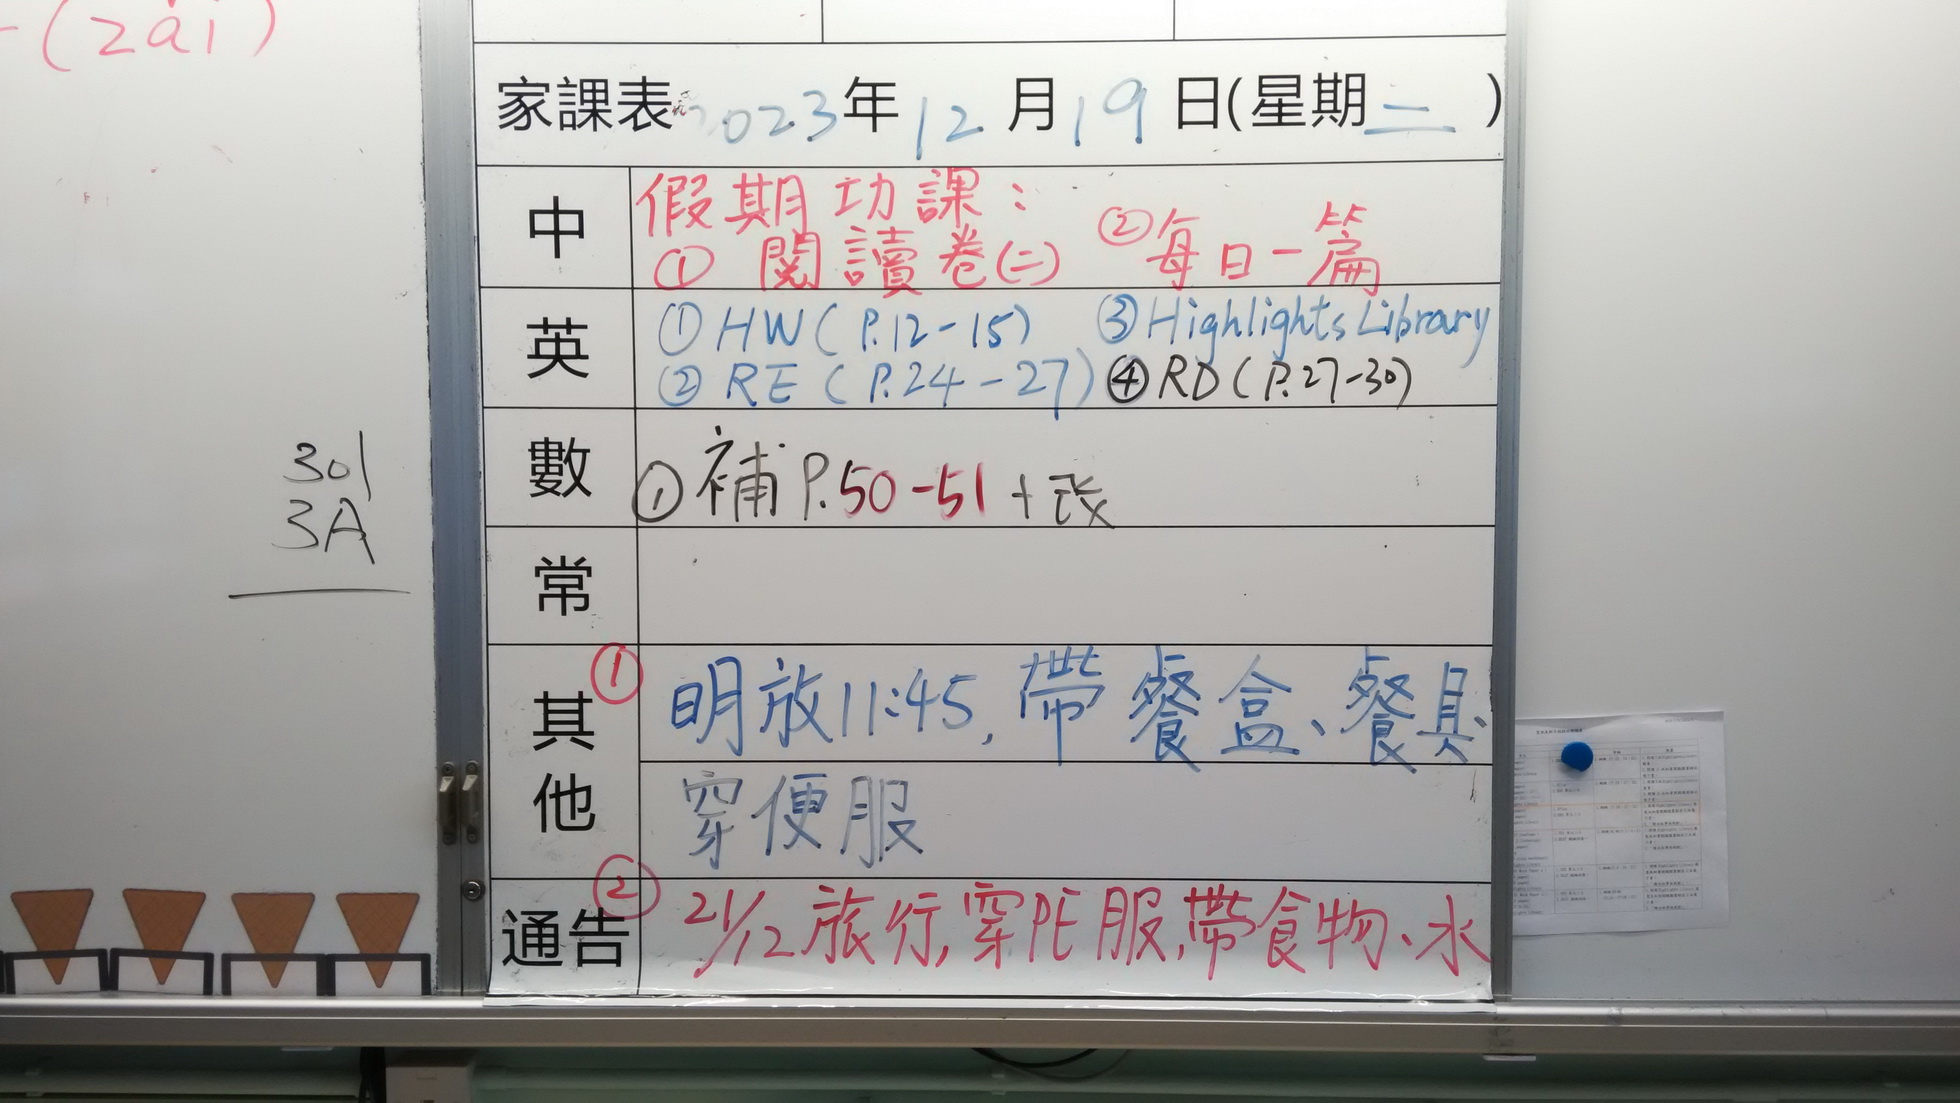 (2ai)
家課表 2023年12月19日(星期二)
中
假期功課：
① 閱讀卷(二) ②每日一篇
英
①HW(P.12-15) ③Highlights Library
②RE(P.24-27) ④RD(P.27-30)
數
①補P.50-51+改
常
其他
①明放11:45,帶餐盒、餐具、
穿便服
通告
②21/12旅行,穿PE服,帶食物、水
301
3A